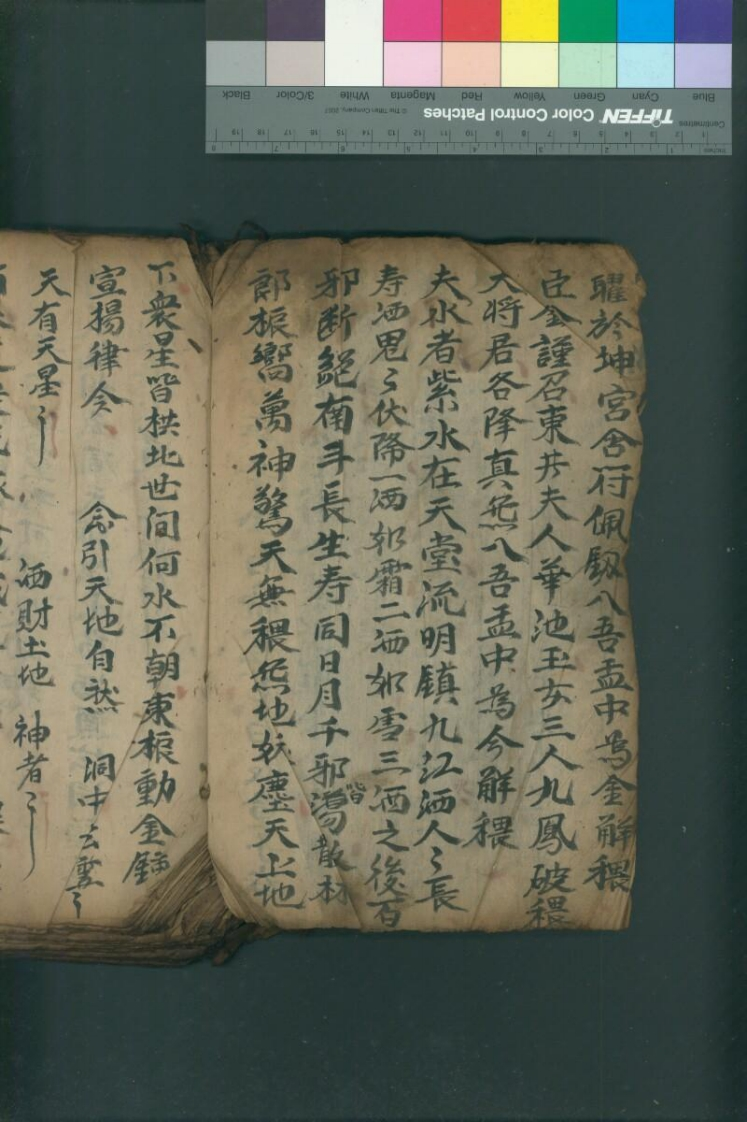 耀於坤宮含符佩劔入吾盂中為金觧穢
臣金謹召東井夫人華池玉女三人九鳳破穢
大将君各降真炁入吾盂中為今觧穢
夫水者紫水在天堂流明鎮九江洒人〻長
寿洒鬼〻伏降一洒如霜二洒如雪三洒之後百
邪断絕南斗長生寿同日月千邪皆蕩散林
郎振嚮萬神驚天無穢炁地妖塵天上地
下衆星皆拱北世间何水不朝東振動金鈡
宣揚律令 令引天地自然 洞中玄虛〻
天有天星〻 洒財土地 神者〻
Black 3/Color White Magenta Red Yellow Green Cyan Blue
TIFFEN Color Control Patches © The Tiffen Company, 2007
Centimetres
Inches